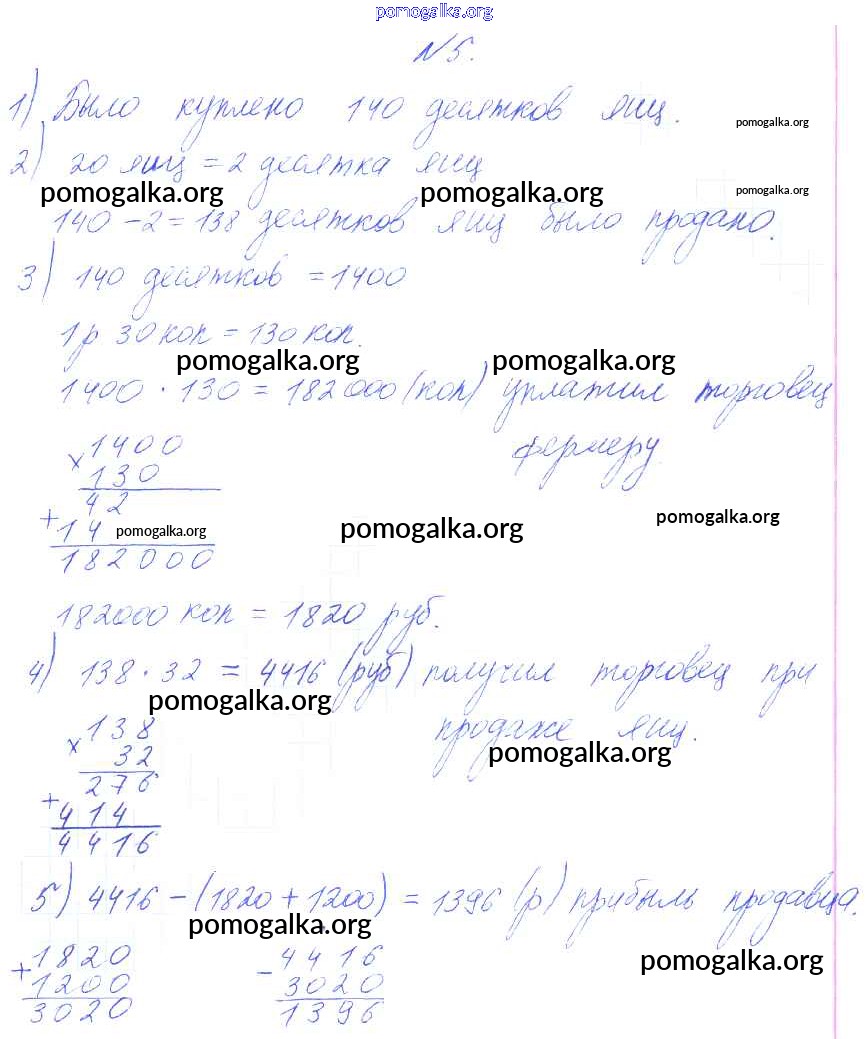 pomogalka.org
№5.
1) Было куплено 140 десятков яиц.
pomogalka.org
2) 20 яиц = 2 десятка яиц
pomogalka.org pomogalka.org pomogalka.org
140 - 2 = 138 десятков яиц было продано.
3) 140 десятков = 1400
1 р 30 коп = 130 коп.
pomogalka.org pomogalka.org
1400 · 130 = 182000 (коп) уплатил торговец
фермеру.
× 1400
130
42
+ 14
pomogalka.org pomogalka.org pomogalka.org
182000
182000 коп = 1820 руб.
4) 138 · 32 = 4416 (руб) получил торговец при
pomogalka.org
продаже яиц.
pomogalka.org
× 138
32
276
+ 414
4416
5) 4416 - (1820 + 1200) = 1396 (р) прибыль продавца.
pomogalka.org
+ 1820 - 4416
pomogalka.org
1200 3020
3020 1396